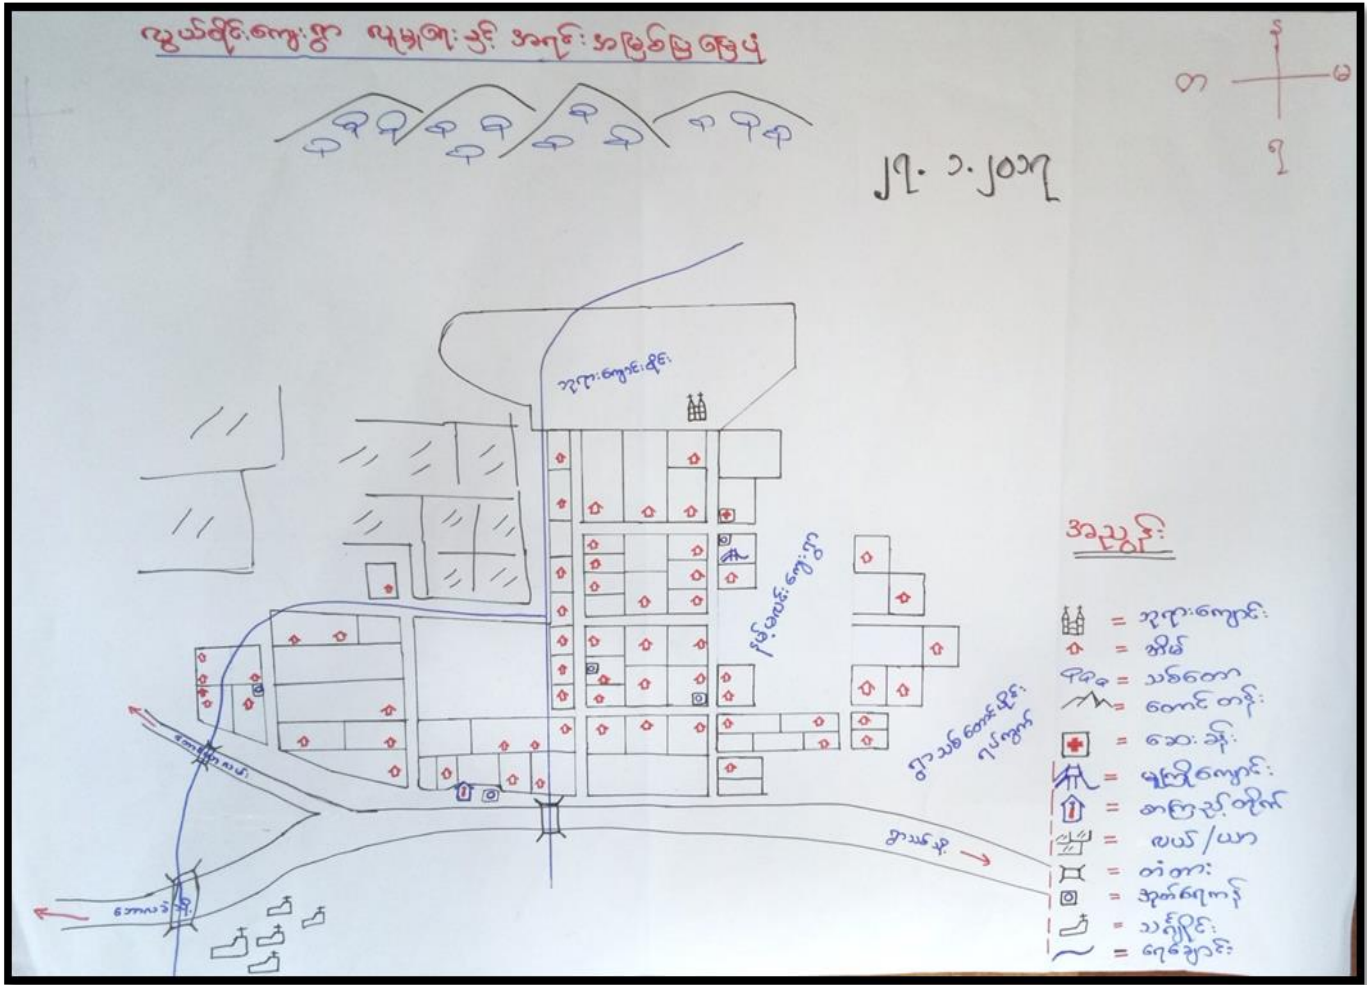 လွယ်ဖိုင်းကျေးရွာ လူမှုရေးနှင့် အရင်းအမြစ်ပြမြေပုံ
န
တ
မ
ရ
၂၇.၁.၂၀၁၇
ဘုရားကျောင်းဝိုင်း
ကျေးရွာ
ရွာသစ်တောင်ပိုင်း
ရပ်ကွက်
ရွာသစ်သို့
ဘောလခဲသို့
အညွှန်း
= ဘုရားကျောင်း
= အိမ်
= သစ်တော
= တောင်တန်း
= ဆေးခန်း
= မူကြိုကျောင်း
= စာကြည့်တိုက်
= လယ်/ယာ
= တံတား
= အုတ်ရေကန်
= သင်္ချိုင်း
= ရေချောင်း